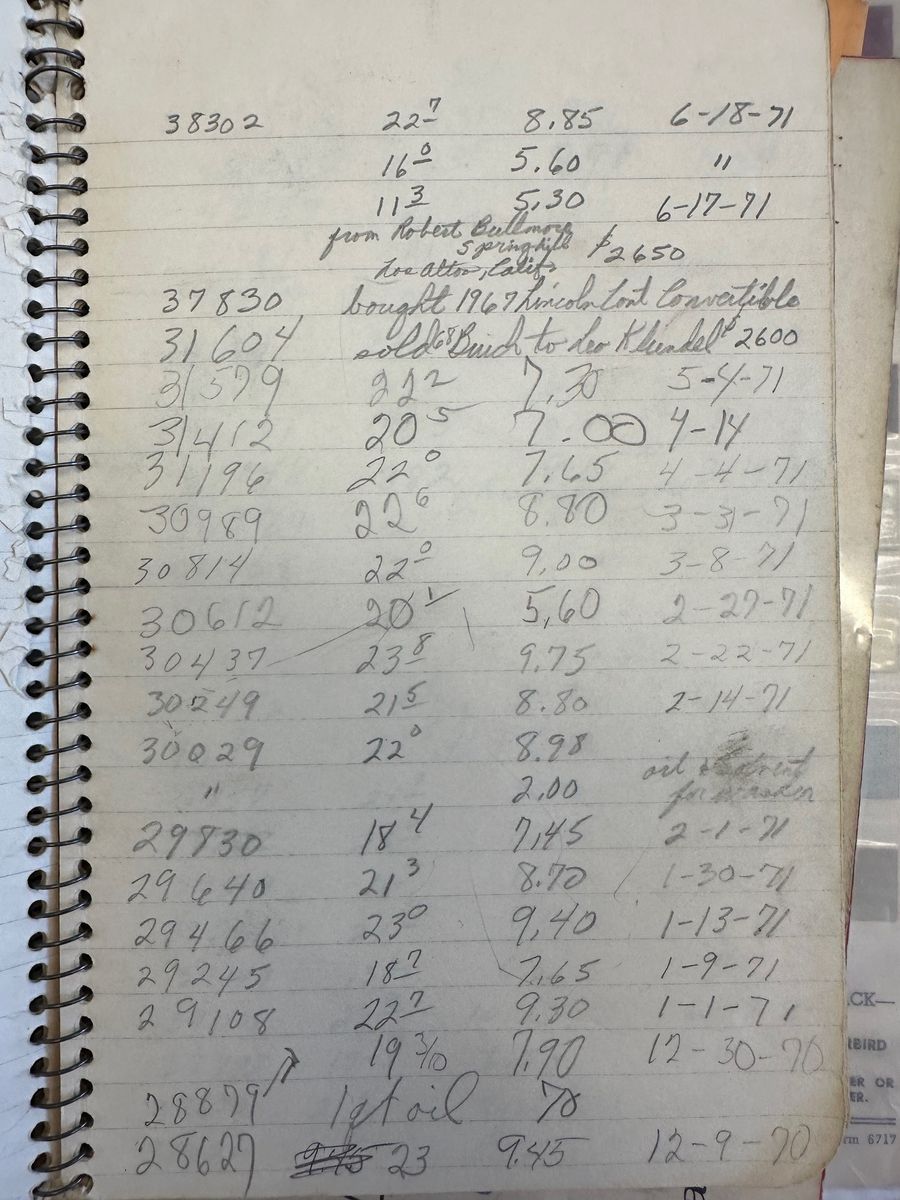 38302 22 7 8.85 6-18-71
16 0 5.60 "
11 3 5.30 6-17-71
from Robert Bullmore
Springhill $2650
Los Altos, Calif
37830 bought 1967 Lincoln Cont Convertible
31604 sold 68 Buick to Leo Klundel $2600
31579 22 2 7.30 5-4-71
31412 20 5 7.00 4-14
31196 22 0 7.65 4-4-71
30989 22 6 8.80 3-31-71
30814 22 0 9.00 3-8-71
30612 20 1 5.60 2-27-71
30437 23 8 9.75 2-22-71
30249 21 5 8.80 2-14-71
30029 22 0 8.98
oil
" 2.00 for
29830 18 4 7.45 2-1-71
29640 21 3 8.70 1-30-71
29466 23 0 9.40 1-13-71
29245 18 7 7.65 1-9-71
29108 22 7 9.30 1-1-71
19 3/10 7.90 12-30-70
28879 1 qt oil 70
28627 23 9.45 12-9-70
CK—
RBIRD
ER OR
ER.
rm 6717